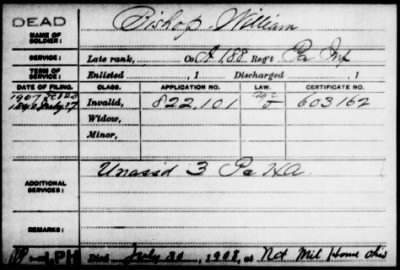 DEAD
NAME OF SOLDIER:
Bishop William
SERVICE:
Late rank, Co. A, 188 Reg't Pa Inf
TERM OF SERVICE:
Enlisted , 1 Discharged , 1
DATE OF FILING. CLASS. APPLICATION NO. LAW. CERTIFICATE NO.
1890 July 17 Invalid, 822,101 603162
Widow,
Minor,
ADDITIONAL SERVICES:
Unassd 3 Pa HA
REMARKS:
Died July 30, 1908, at Nat Mil Home Ohio